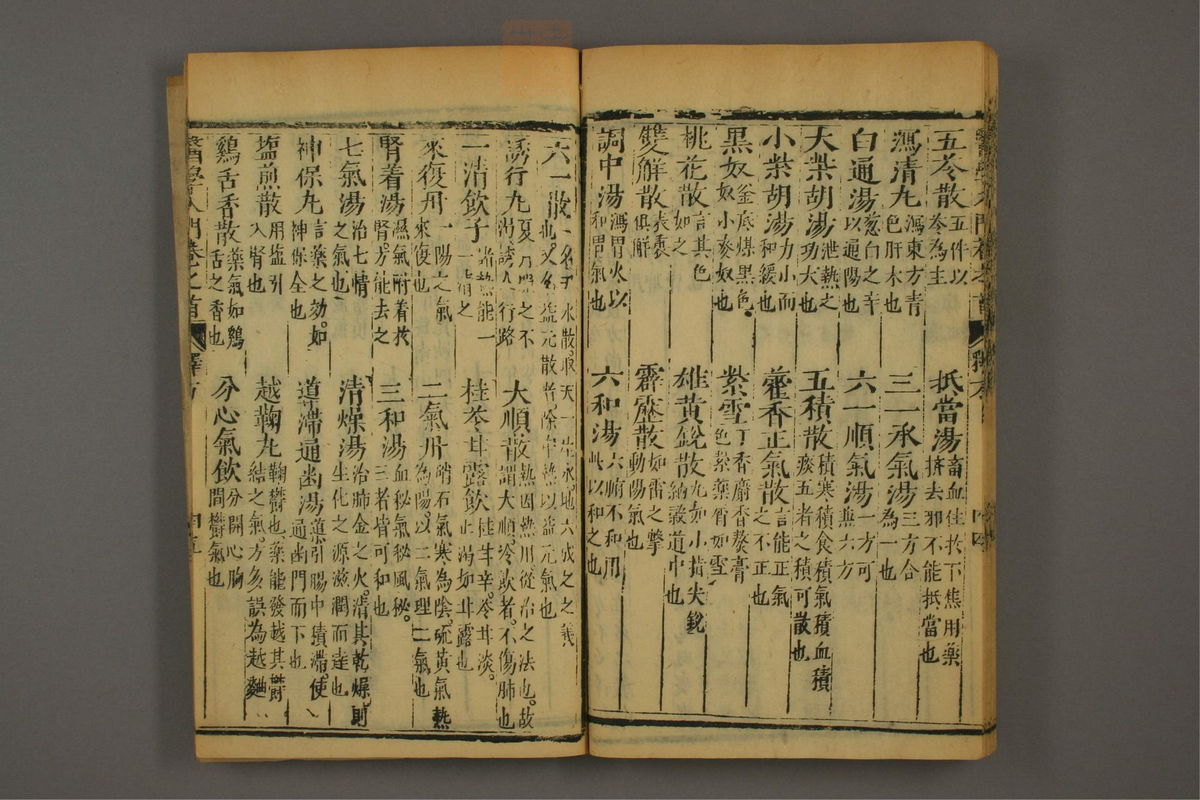 五苓散五件以苓為主 抵當湯畜血住於下焦用藥擠去邪不能抵當也
瀉清九瀉東方青色肝木也 三一承氣湯三方合為一也
白通湯葱白之辛以通陽也 六一順氣湯一方可兼六方
大柴胡湯泄熱之功大也 五積散積寒積食積氣積血積痰五者之積可散也
小柴胡湯力小而和緩也 藿香正氣散言能正氣之不正也
黑奴釜底煤黑色奴小麥奴也 紫雪丁香麝香熬膏色紫藥屑如雪
桃花散言其色如之 雄黃銳散九如小指尖銳納穀道中也
雙解散表裏俱解 霹靂散如雷之擊動陽氣也
調中湯瀉胃火以和胃氣也 六和湯六腑不和用此以和之也
六一散一名天水散取天一生水地六成之之義也又名益元散者除中熱以益元氣也
誘行九夏月興之不渴誘人行路 大順散熱因熱用從治之法也故謂大順冷飲者不傷肺也
一清飲子諸熱能一一清之 桂苓甘露飲桂甘辛苓甘淡止渴如甘露也
來復丹一陽之氣來復也 二氣丹硝石氣寒為陰硫黃氣熱為陽以二氣理二氣也
腎着湯濕氣附着於腎方能去之 三和湯血秘氣秘風秘三者皆可和也
七氣湯治七情之氣也 清燥湯治肺金之火清其乾燥則生化之源滋潤而達也
神保九言藥之効如神保全也 導滯通幽湯導引腸中積滯使通幽門而下也
塩煎散用塩引入腎也 越鞠九鞠鬱也藥能發越其鬱結之氣方多誤為越麯
鷄舌香散藥氣如鷄舌之香也 分心氣飲分開心胸間鬱氣也
醫學入門卷之首 釋方